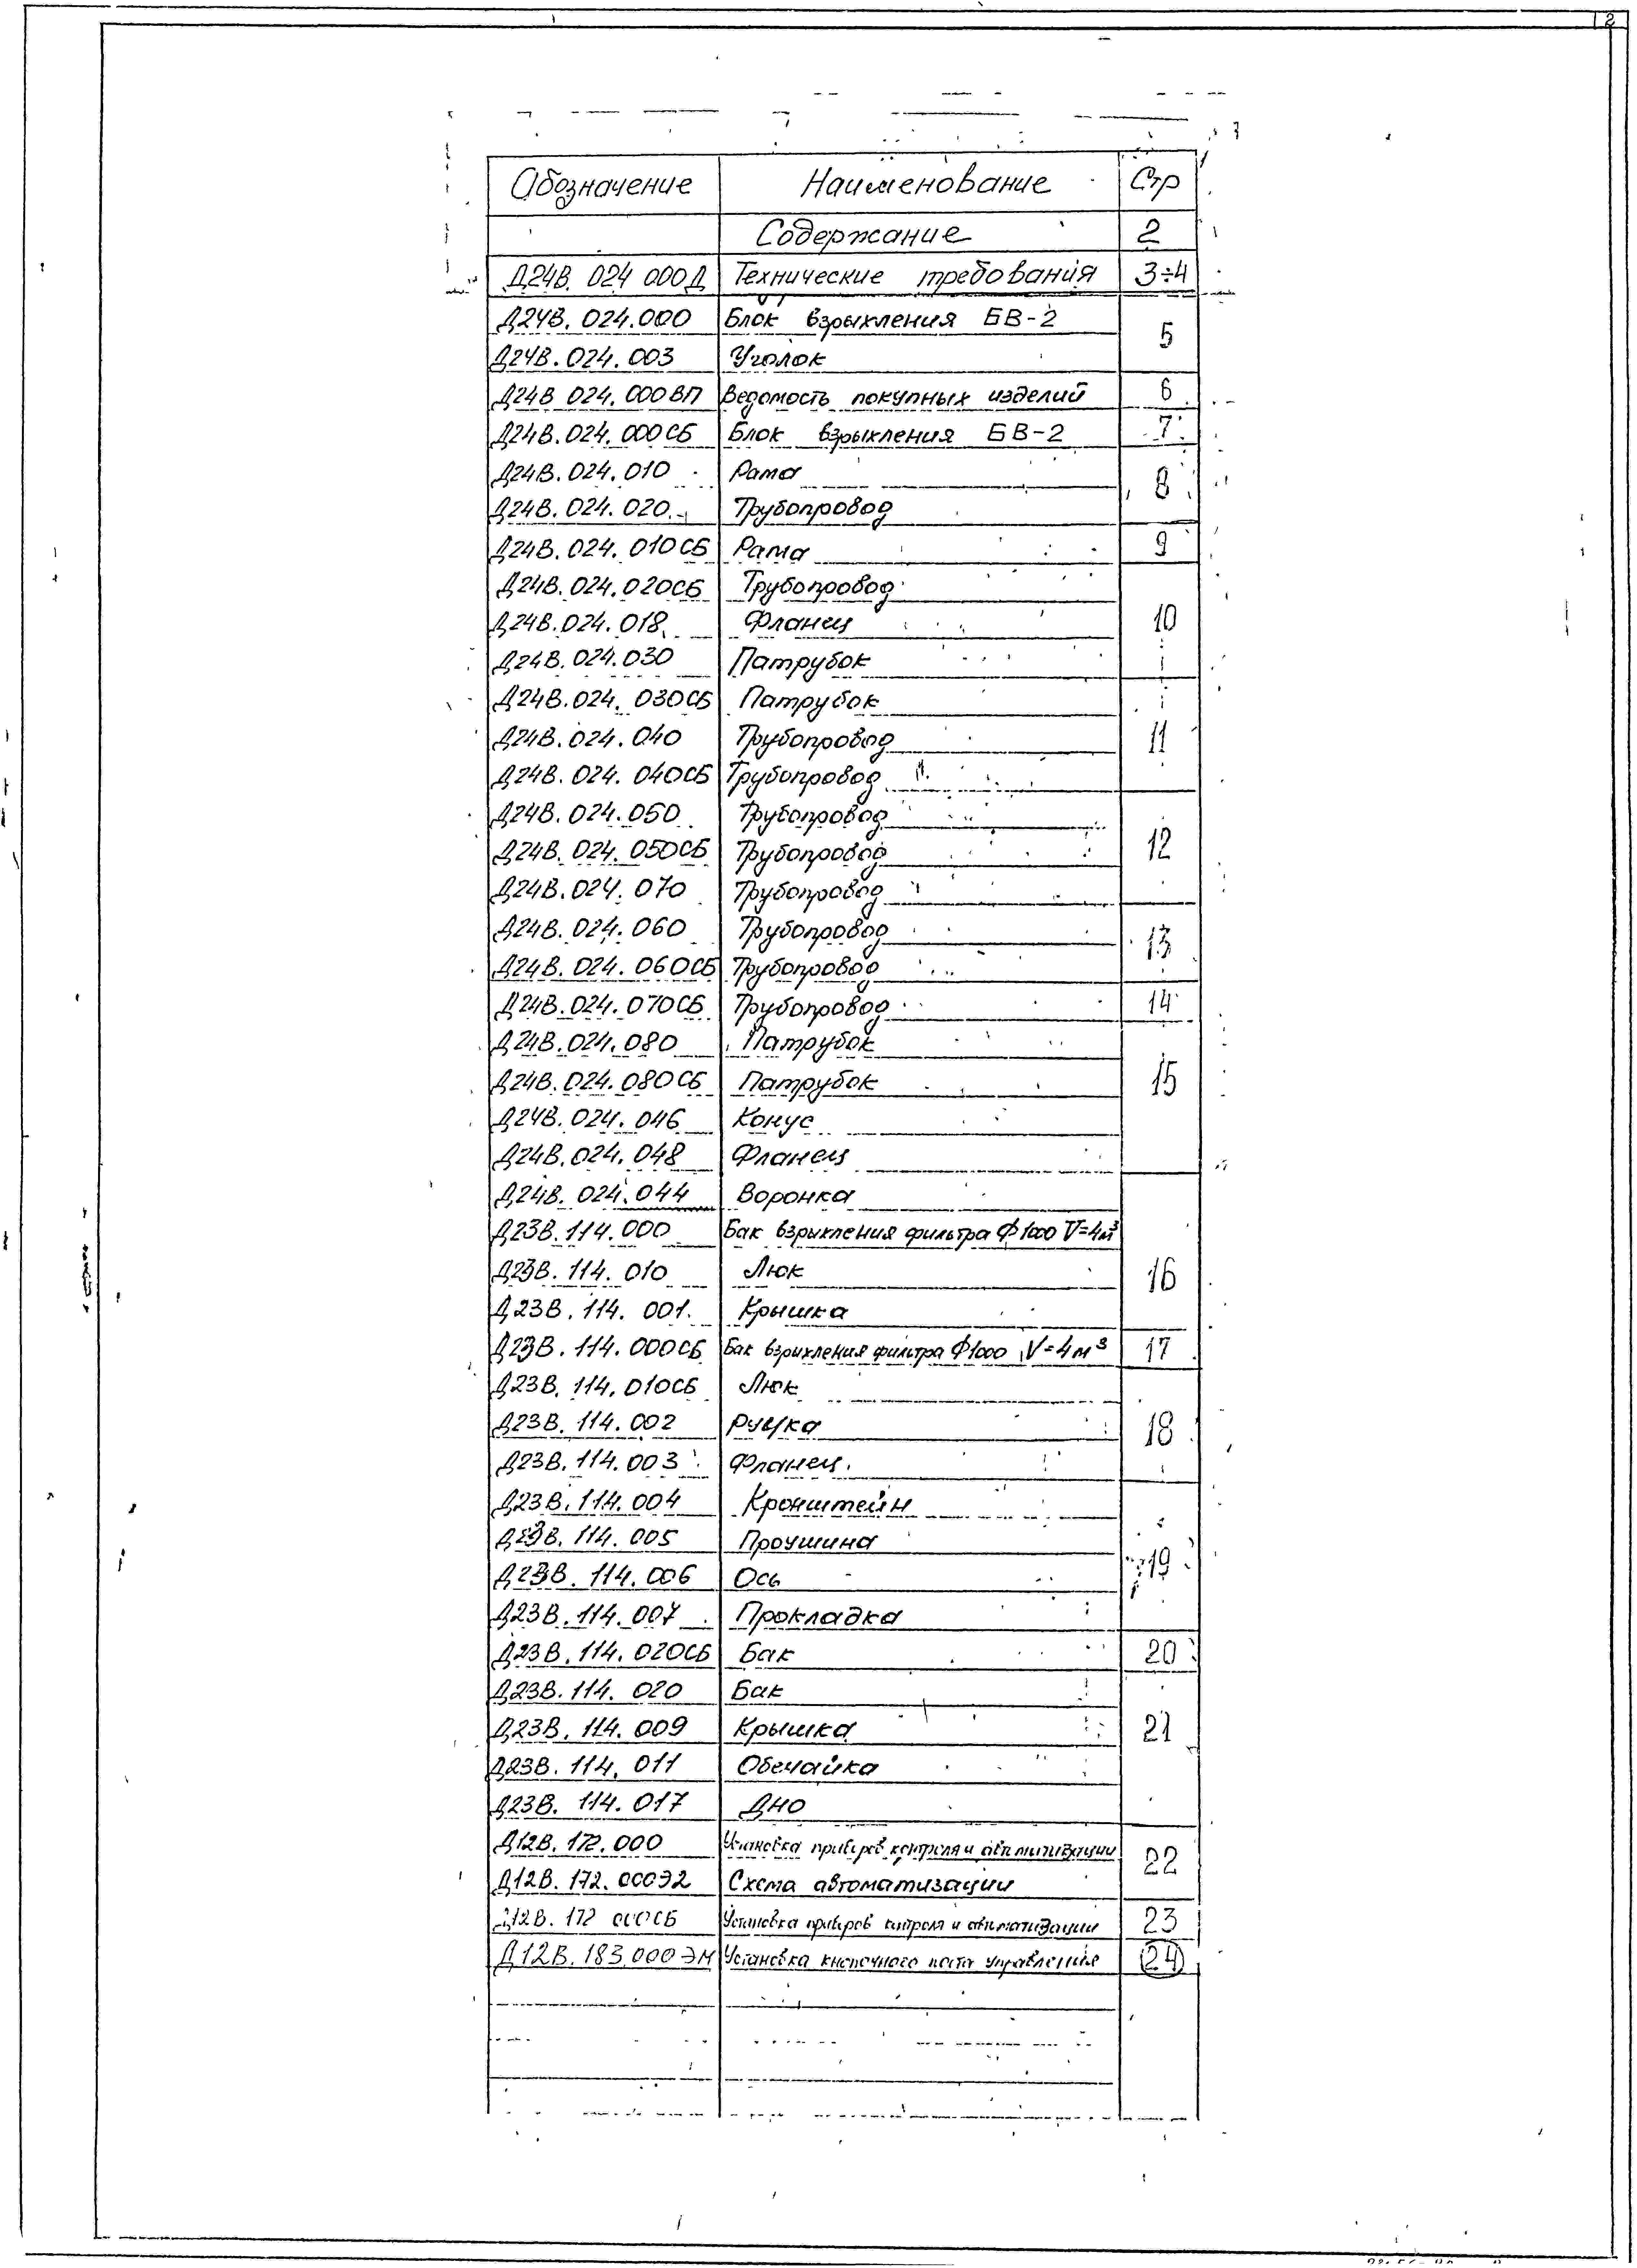 2
Обозначение Наименование Стр
Содержание 2
Д24В. 024 000Д Технические требования 3÷4
Д24В. 024.000 Блок взрыхления БВ-2 5
Д24В. 024. 003 Уголок
Д24В 024. 000ВП Ведомость покупных изделий 6
Д24В. 024. 000СБ Блок взрыхления БВ-2 7
Д24В. 024. 010 Рама 8
Д24В. 024. 020 Трубопровод
Д24В. 024. 010СБ Рама 9
Д24В. 024. 020СБ Трубопровод 10
Д24В. 024. 018 Фланец
Д24В. 024. 030 Патрубок
Д24В. 024. 030СБ Патрубок 11
Д24В. 024. 040 Трубопровод
Д24В. 024. 040СБ Трубопровод
Д24В. 024. 050 Трубопровод 12
Д24В. 024. 050СБ Трубопровод
Д24В. 024. 070 Трубопровод
Д24В. 024. 060 Трубопровод 13
Д24В. 024. 060СБ Трубопровод
Д24В. 024. 070СБ Трубопровод 14
Д24В. 024. 080 Патрубок 15
Д24В. 024. 080СБ Патрубок
Д24В. 024. 046 Конус
Д24В. 024. 048 Фланец
Д24В. 024. 044 Воронка 16
Д23В. 114. 000 Бак взрыхления фильтра Ф1000 V=4м³
Д23В. 114. 010 Люк
Д23В. 114. 001. Крышка
Д23В. 114. 000СБ Бак взрыхления фильтра Ф1000 V=4м³ 17
Д23В. 114. 010СБ Люк 18
Д23В. 114. 002 Ручка
Д23В. 114. 003 Фланец.
Д23В. 114. 004 Кронштейн 19
Д23В. 114. 005 Проушина
Д23В. 114. 006 Ось
Д23В. 114. 007 Прокладка
Д23В. 114. 020СБ Бак 20
Д23В. 114. 020 Бак 21
Д23В. 114. 009 Крышка
Д23В. 114. 011 Обечайка
Д23В. 114. 017 Дно
Д12В. 172. 000 Установка приборов контроля и автоматизации 22
Д12В. 172. 000Э2 Схема автоматизации
Д12В. 172 000СБ Установка приборов контроля и автоматизации 23
Д12В. 183. 000 ЭМ Установка кнопочного поста управления 24